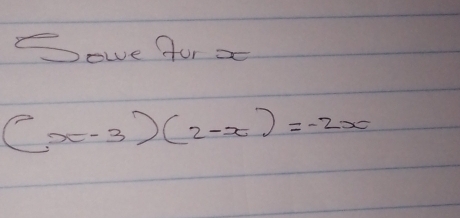 Solve for x
(x-3)(2-x) = -2x